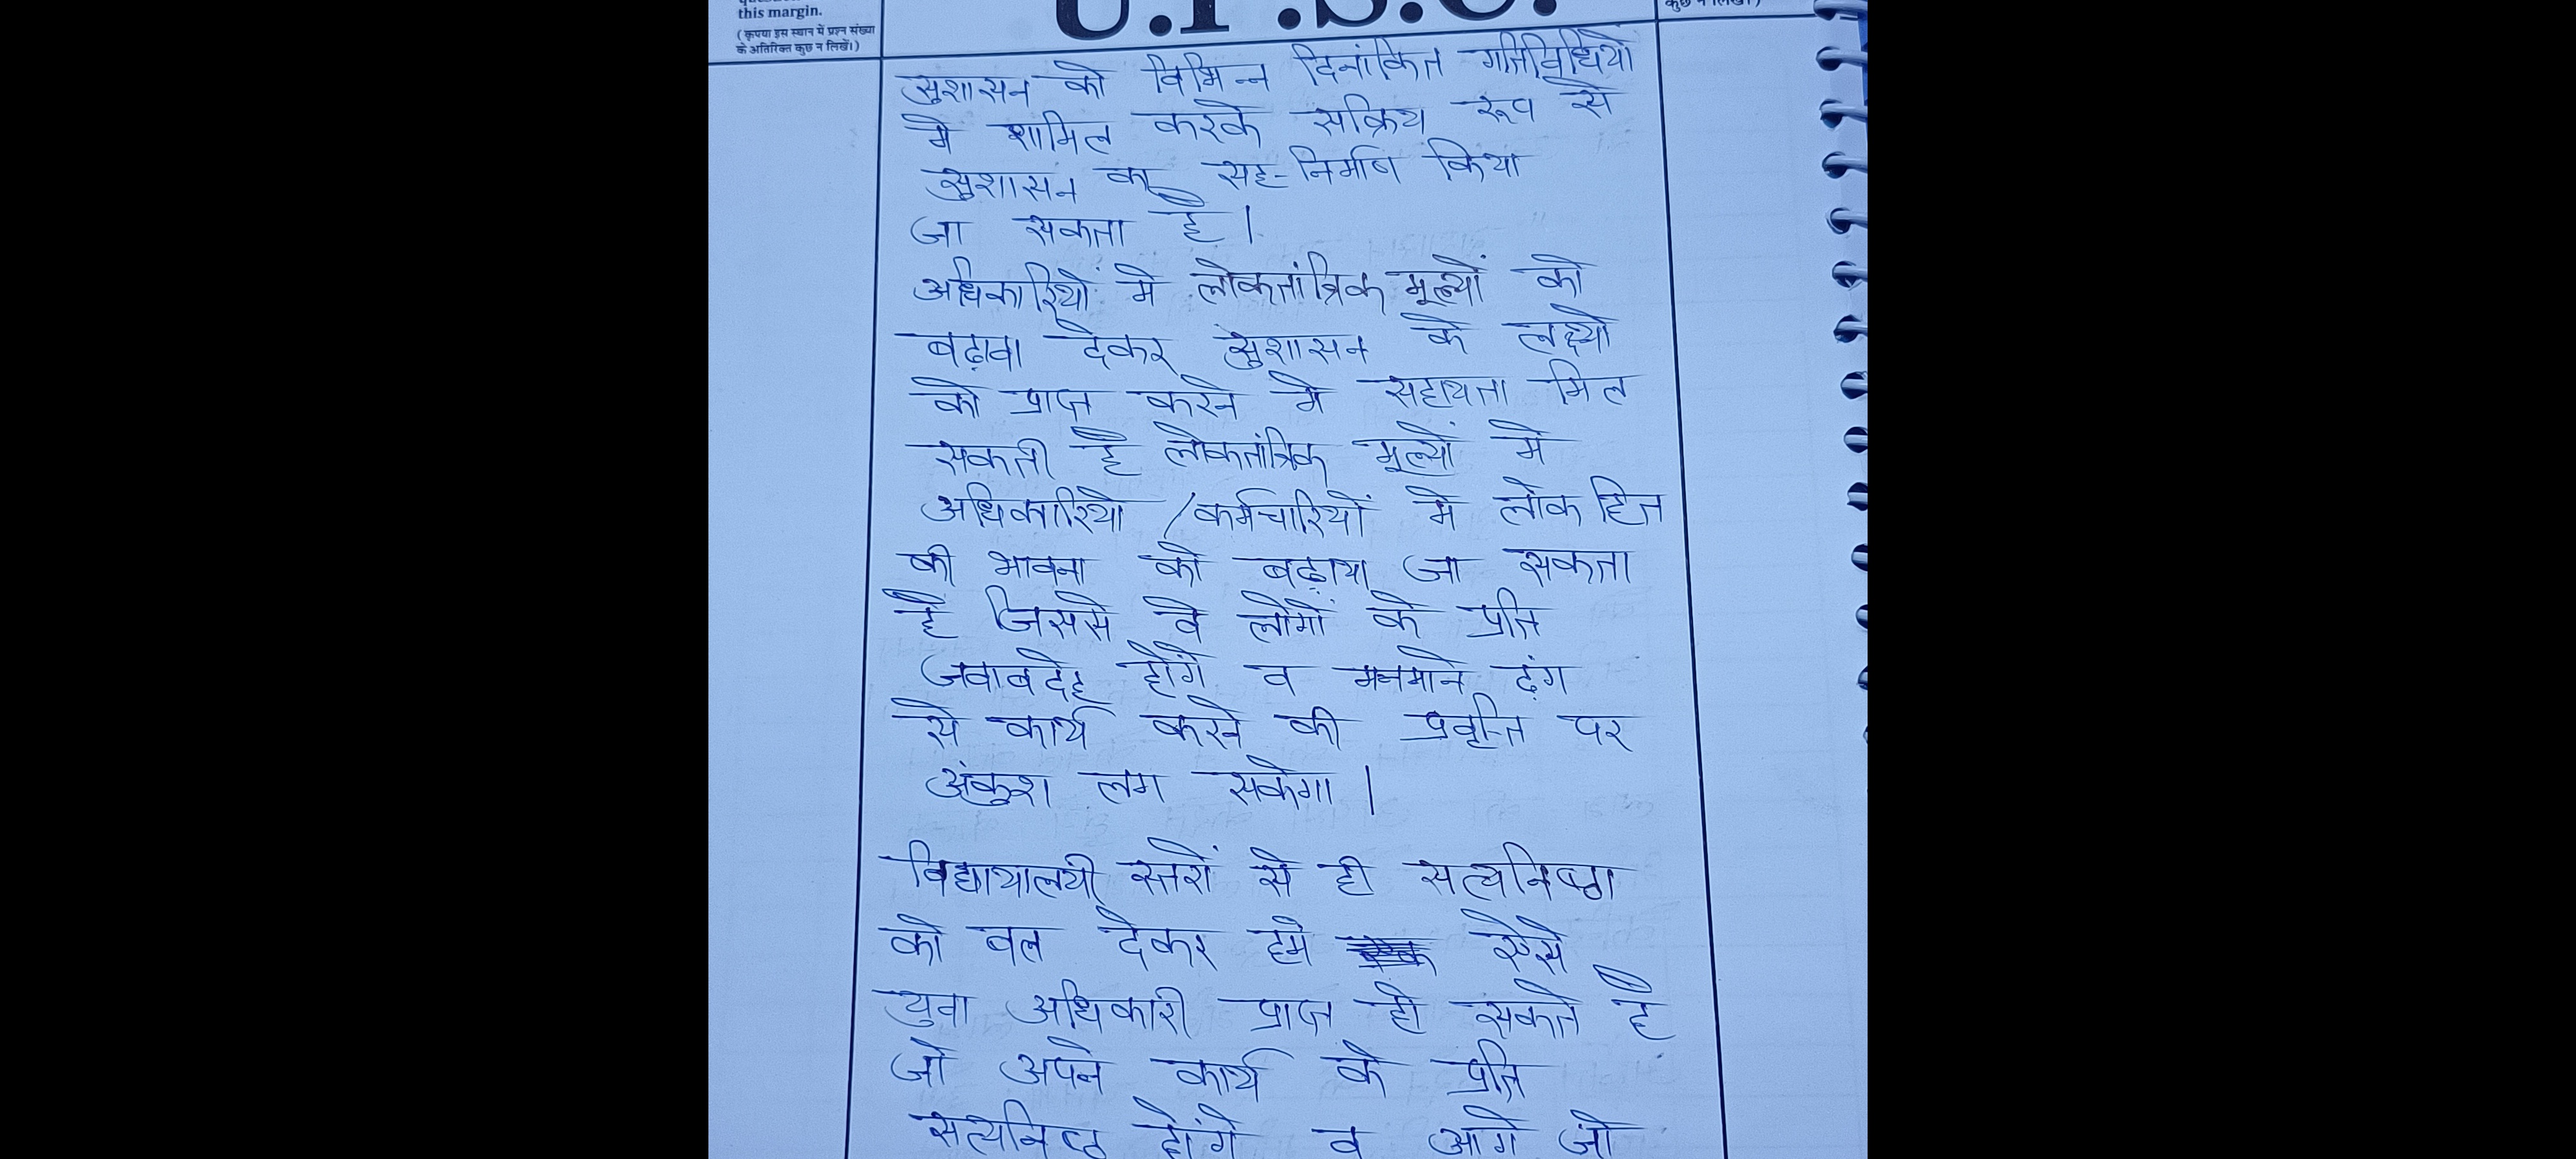 this margin.
(कृपया इस स्थान में प्रश्न संख्या
के अतिरिक्त कुछ न लिखें।)
U.P.S.C.
सुशासन को विभिन्न दिनांकित गतिविधियो
मे शामिल करके सक्रिय रूप से
सुशासन का सह-निर्माण किया
जा सकता है।
अधिकारियों मे लोकतांत्रिक मूल्यों को
बढ़ावा देकर सुशासन के लक्ष्यो
को प्राप्त करने मे सहायता मिल
सकती है लोकतांत्रिक मूल्यों मे
अधिकारियो /कर्मचारियों मे लोक हित
की भावना को बढ़ाया जा सकता
है जिससे वे लोगों के प्रति
जवाबदेह होंगे व मनमाने ढ़ंग
से कार्य करने की प्रवृत्ति पर
अंकुश लग सकेगा।
विद्यायालयी स्तरों से ही सत्यनिष्ठा
को बल देकर हमे ऐसे
युवा अधिकारी प्राप्त हो सकते है
जो अपने कार्य के प्रति
सत्यनिष्ठ होंगे व आगे जो